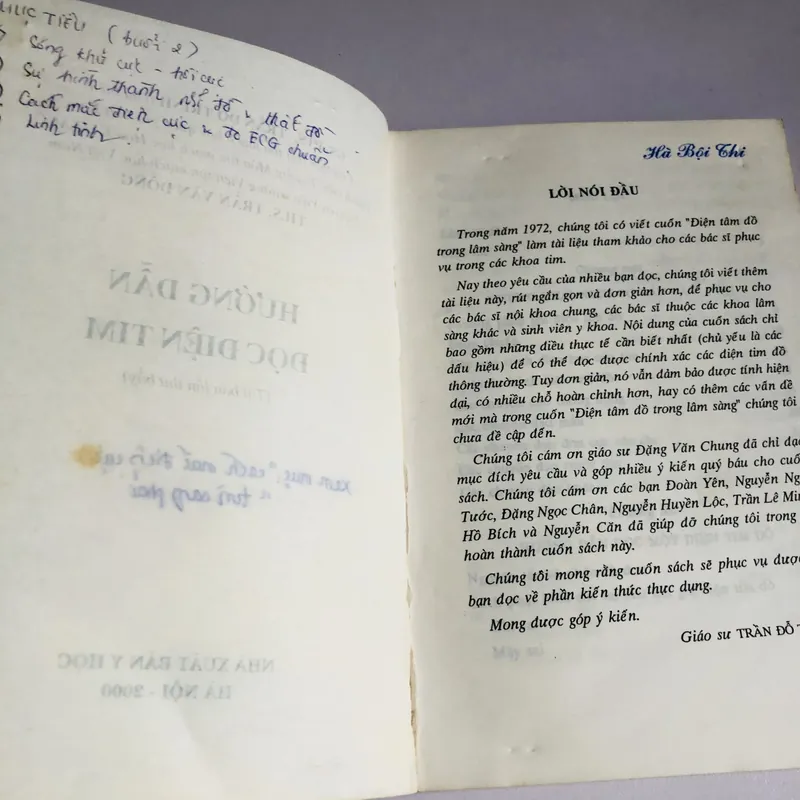 MỤC TIÊU (buổi 2)
Sóng khử cực - tái cực
Sự hình thành nhĩ đồ, thất đồ
Cách mắc điện cực & đo ECG chuẩn
Linh tinh.
THS. TRẦN VĂN ĐỒNG
HƯỚNG DẪN
ĐỌC ĐIỆN TIM
NHÀ XUẤT BẢN Y HỌC
HÀ NỘI - 2000
Hà Bội Thi
LỜI NÓI ĐẦU
Trong năm 1972, chúng tôi có viết cuốn "Điện tâm đồ
trong lâm sàng" làm tài liệu tham khảo cho các bác sĩ phục
vụ trong các khoa tim.
Nay theo yêu cầu của nhiều bạn đọc, chúng tôi viết thêm
tài liệu này, rút ngắn gọn và đơn giản hơn, để phục vụ cho
các bác sĩ nội khoa chung, các bác sĩ thuộc các khoa lâm
sàng khác và sinh viên y khoa. Nội dung của cuốn sách chỉ
bao gồm những điều thực tế cần biết nhất (chủ yếu là các
dấu hiệu) để có thể đọc được chính xác các điện tim đồ
thông thường. Tuy đơn giản, nó vẫn đảm bảo được tính hiện
đại, có nhiều chỗ hoàn chỉnh hơn, hay có thêm các vấn đề
mới mà trong cuốn "Điện tâm đồ trong lâm sàng" chúng tôi
chưa đề cập đến.
Chúng tôi cám ơn giáo sư Đặng Văn Chung đã chỉ đạo
mục đích yêu cầu và góp nhiều ý kiến quý báu cho cuốn
sách. Chúng tôi cám ơn các bạn Đoàn Yên, Nguyễn Ng
Tước, Đặng Ngọc Chân, Nguyễn Huyền Lộc, Trần Lê Min
Hồ Bích và Nguyễn Căn đã giúp đỡ chúng tôi trong
hoàn thành cuốn sách này.
Chúng tôi mong rằng cuốn sách sẽ phục vụ được
bạn đọc về phần kiến thức thực dụng.
Mong được góp ý kiến.
Giáo sư TRẦN ĐỖ T